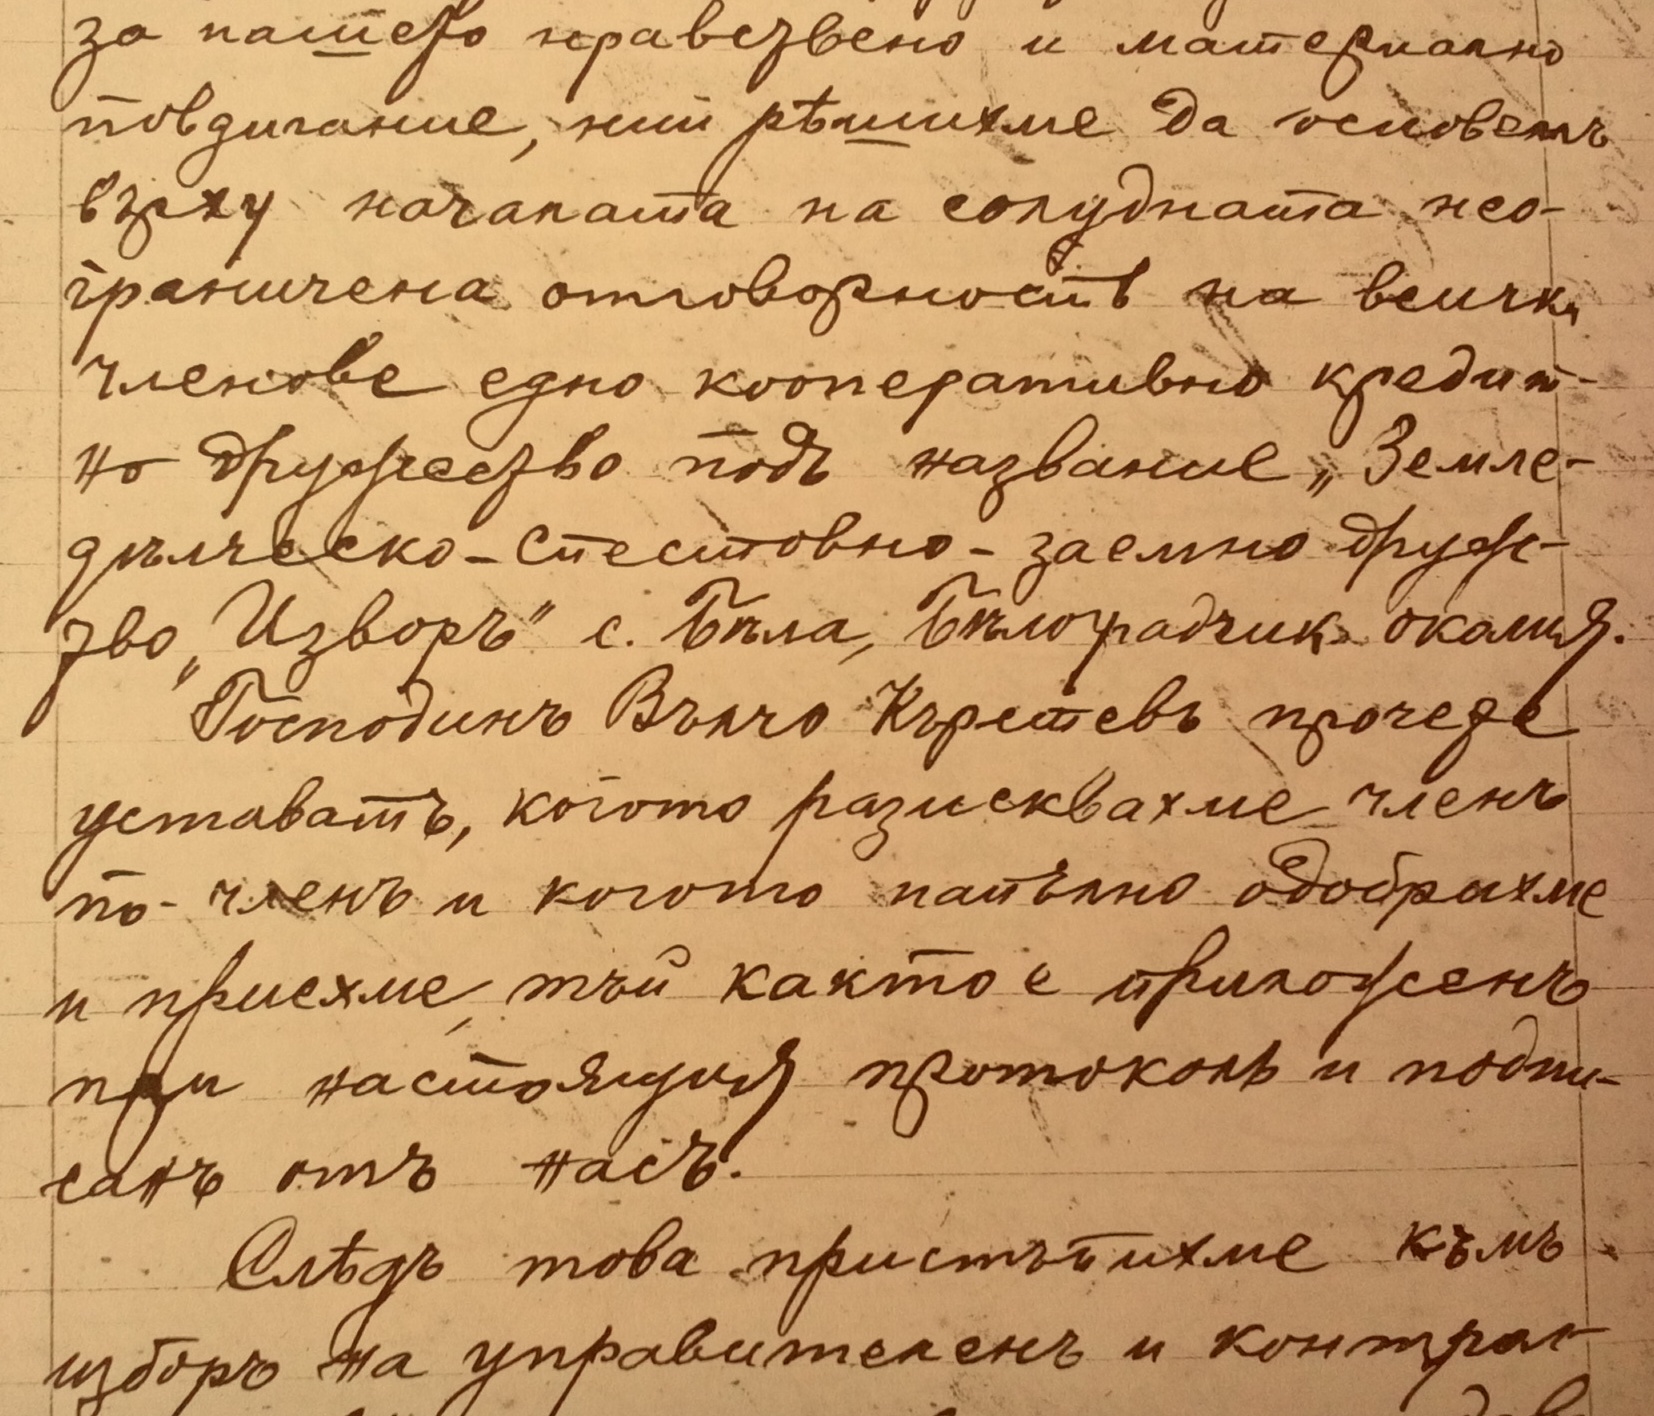 за нашето нравствено и материално
повдигание, ний рѣшихме да основемъ
върху началата на солудната нео-
граничена отговорность на всички
членове едно кооперативно кредит-
но дружество подъ название „Земле-
дѣлческо-спестовно-заемно друже-
ство „Изворъ" с. Бѣла, Бѣлоградчик. околия.
Господинъ Вълчо Кърстевъ прочете
уставатъ, когото разисквахме членъ
по-членъ и когото напълно одобрихме
и приехме, тъй както е приложенъ
при настоящия протоколъ и подпи-
санъ отъ насъ.
Слѣдъ това пристъпихме къмъ
изборъ на управителенъ и контрол-